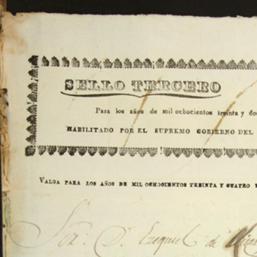 SELLO TERCERO
Para los años de mil ochocientos treinta y dos
HABILITADO POR EL SUPREMO GOBIERNO DEL
VALGA PARA LOS AÑOS DE MIL OCHOCIENTOS TREINTA Y CUATRO Y
Sor. D. Ezequiel de